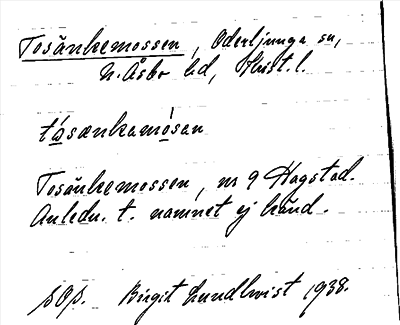 Tosänkemossen, Oderljunga sn,
N. Åsbo hd, Krist. l.
tósænkamósan
Tosänkemossen, nr 9 Hagstad.
Anledn. t. namnet ej känd.
Birgit Lundkvist 1938.